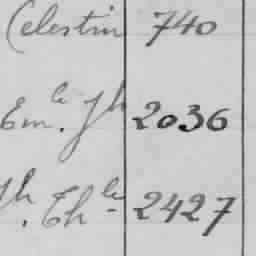 Celestin 740
Em.le Jh 2036
Jh. Th.le 2427